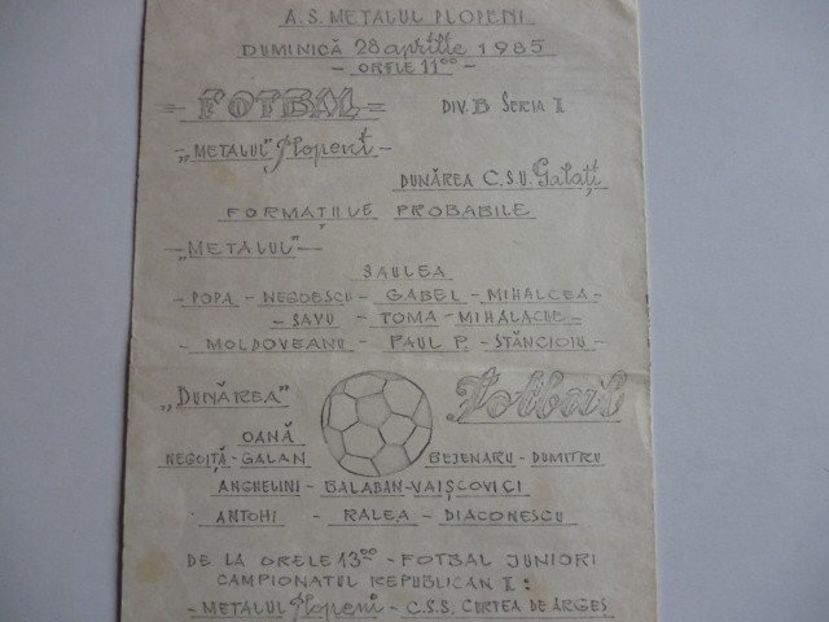 A.S. METALUL PLOPENI
DUMINICĂ 28 aprilie 1985
- ORELE 11⁰⁰ -
= FOTBAL = DIV. B SERIA I
- „METALUL" Plopeni -
DUNĂREA C.S.U. Galați
FORMAȚIILE PROBABILE
- „METALUL" -
SAULEA
- POPA - NEGOESCU - GABEL - MIHALCEA -
- SAVU - TOMA - MIHALACHE -
- MOLDOVEANU - PAUL P. - STĂNCIOIU -
„DUNĂREA" Fotbal
OANĂ
NEGOIȚĂ - GALAN BEJENARU - DUMITRU
ANGHELINI - BALABAN - VAIȘCOVICI
ANTOHI - RALEA - DIACONESCU
DE LA ORELE 13⁰⁰ - FOTBAL JUNIORI
CAMPIONATUL REPUBLICAN I :
- METALUL Plopeni - C.S.S. CURTEA DE ARGEȘ